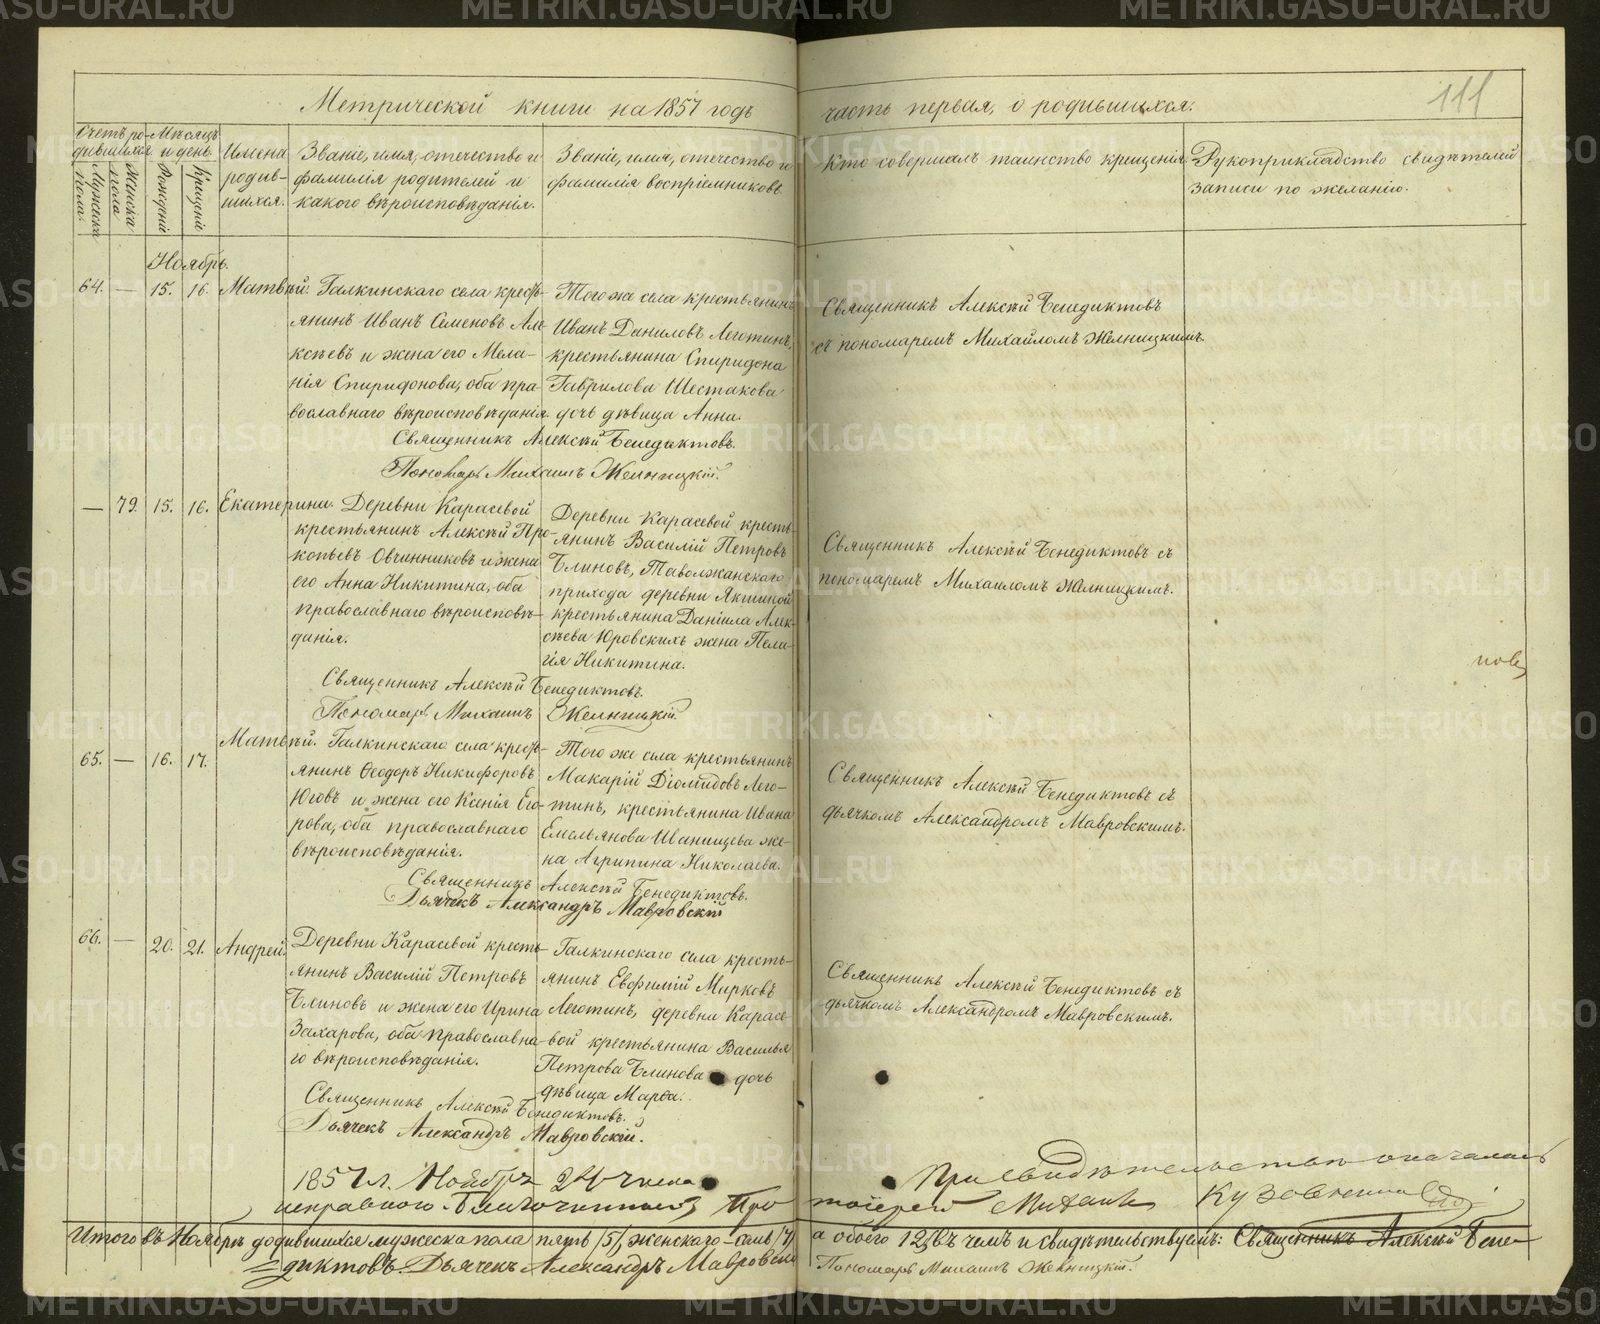 Метрической книги на 1857 годъ
часть первая, о родившихся.
111
Счетъ родившихся
Мужеска пола.
Женска пола
Мѣсяцъ и день
Рожденія
Крещенія
Имена родившихся.
Званіе, имя, отечество и
фамилія родителей и
какого вѣроисповѣданія.
Званіе, имя, отечество и
фамилія воспріемниковъ
Кто совершалъ таинство крещенія
Рукоприкладство свидѣтелей
записи по желанію.
Ноябрь.
64. — 15. 16. Матвѣй.
Галкинскаго села кресть-
янинъ Иванъ Семеновъ Але-
ксѣевъ и жена его Мела-
нія Спиридонова, оба пра-
вославнаго вѣроисповѣданія.
Того же села крестьянинъ
Иванъ Даниловъ Леготинъ,
крестьянина Спиридона
Гаврилова Шестакова
дочь дѣвица Анна.
Священникъ Алексѣй Бенедиктовъ
съ пономаремъ Михайломъ Желницкимъ.
Священникъ Алексѣй Бенедиктовъ.
Пономарь Михаилъ Желницкій.
— 79. 15. 16. Екатерина.
Деревни Карасевой
крестьянинъ Алексѣй Про-
копьевъ Овчинниковъ и жена
его Анна Никитина, оба
православнаго вѣроисповѣ-
данія.
Деревни Карасевой кресть-
янинъ Василій Петровъ
Блиновъ, Таволжанскаго
прихода деревни Якшиной
крестьянина Даніила Алек-
сѣева Юровскихъ жена Пела-
гія Никитина.
Священникъ Алексѣй Бенедиктовъ съ
пономаремъ Михаиломъ Желницкимъ.
Священникъ Алексѣй Бенедиктовъ.
Пономарь Михаилъ Желницкій.
пов
65. — 16. 17. Матвѣй.
Галкинскаго села кресть-
янинъ Ѳеодоръ Никифоровъ
Юговъ и жена его Ксенія Его-
рова, оба православнаго
вѣроисповѣданія.
Того же села крестьянинъ
Макарій Діомидовъ Лего-
тинъ, крестьянина Ивана
Емельянова Иванищева же-
на Агрипина Николаева.
Священникъ Алексѣй Бенедиктовъ съ
дьячкомъ Александромъ Мавровскимъ.
Священникъ Алексѣй Бенедиктовъ.
Дьячекъ Александръ Мавровскій
66. — 20. 21. Андрей.
Деревни Карасевой кресть-
янинъ Василій Петровъ
Блиновъ и жена его Ирина
Захарова, оба православна-
го вѣроисповѣданія.
Галкинскаго села кресть-
янинъ Евфимій Марковъ
Леготинъ, деревни Карасе-
вой крестьянина Василья
Петрова Блинова дочь
дѣвица Марѳа.
Священникъ Алексѣй Бенедиктовъ съ
дьячкомъ Александромъ Мавровскимъ.
Священникъ Алексѣй Бенедиктовъ.
Дьячекъ Александръ Мавровскій.
1857 г. Ноября 24 числа При свидѣтельствѣ оказалась
исправною. Благочинный Протоіерей Михаилъ
Итого въ Ноябрѣ родившихся мужеска пола пять /5/, женскаго — семь /7/ а обоего 12, въ чемъ и свидѣтельствуемъ: Священникъ Алексѣй Бене-
диктовъ. Дьячекъ Александръ Мавровскій Пономарь Михаилъ Желницкій.
METRIKI.GASU-URAL.RU